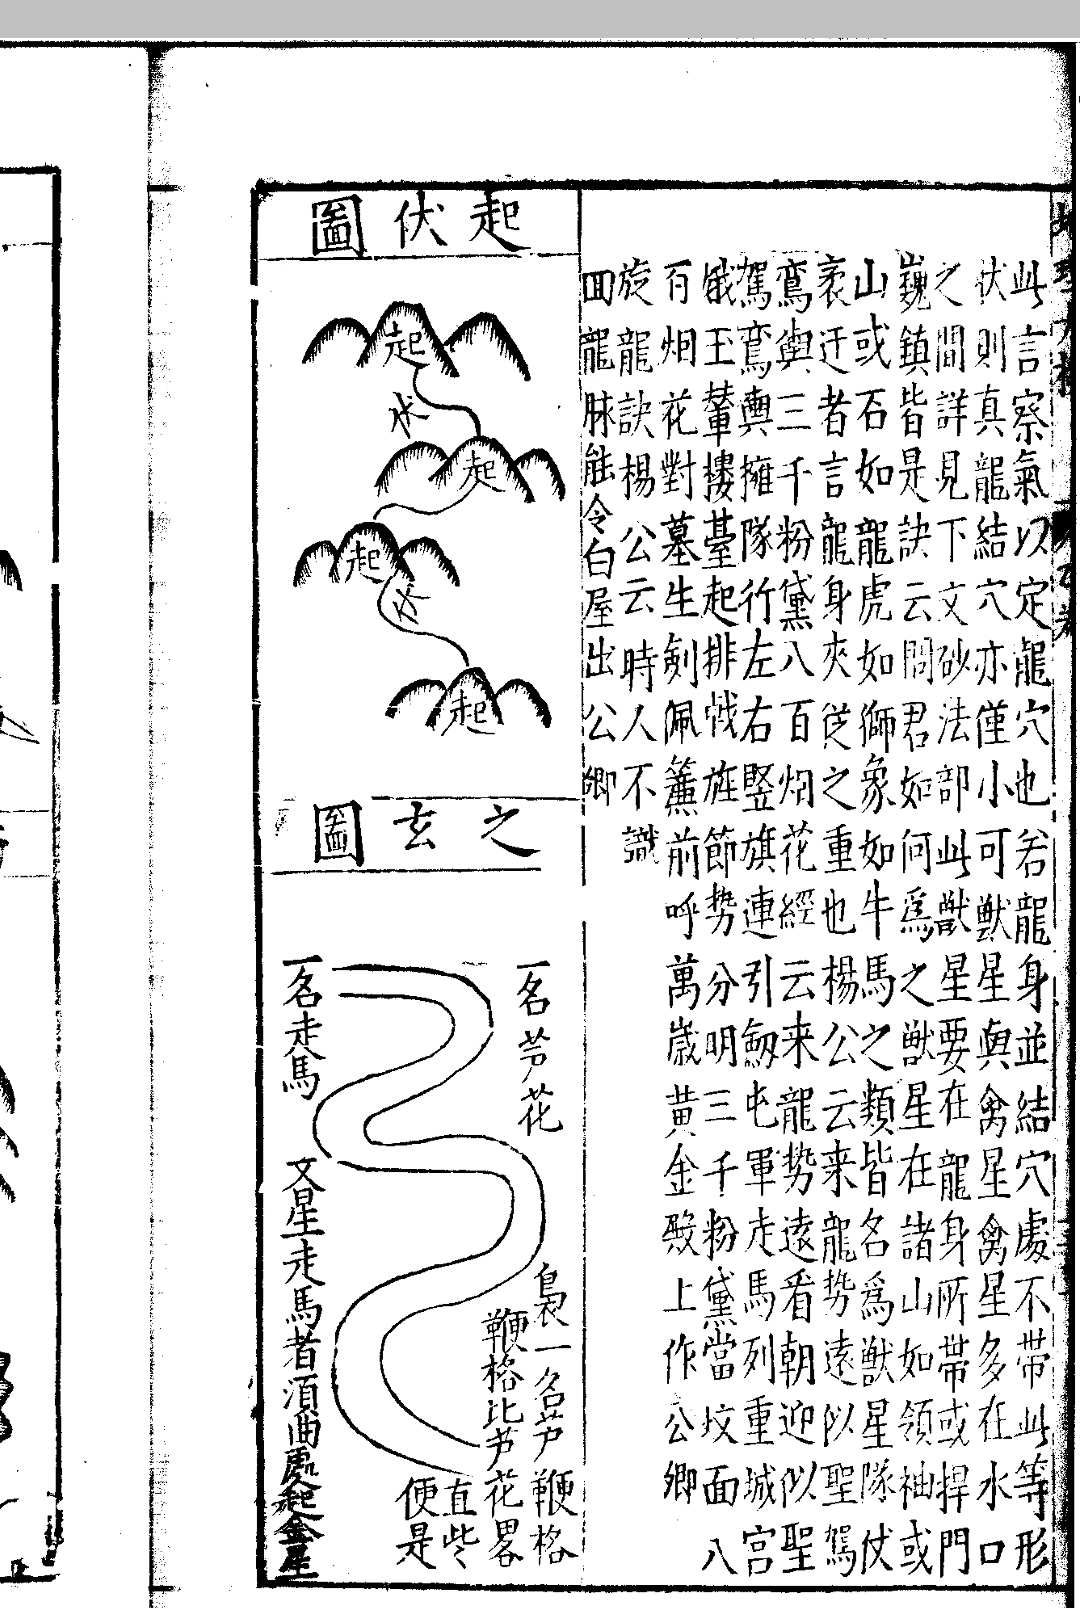 此言察氣以定龍穴也若龍身並結穴處不帶此等形
状則真龍結穴亦僅小可獣星與禽星禽星多在水口
之間詳見下文砂法部此獣星要在龍身所帶或捍門
巍鎮皆是訣云問君如何爲之獣星在諸山如領袖或
山或石如龍虎如獅象如牛馬之類皆名爲獣星隊仗
衮迁者言龍身夾従之重也楊公云来龍势遠似聖駕
鸞輿三千粉黛八百烟花經云来龍势遠看朝迎似聖
駕鸞輿擁隊行左右竪旗連引劔屯軍走馬列重城宮
娥玉輦摟䑓起排戟旌節势分明三千粉黛當坟面八
百烟花對墓生剣佩簾前呼萬歳黄金殿上作公卿
旋龍訣楊公云時人不識
回龍脉能令白屋出公卿
起伏圖
起
水
起
起
水
起
之玄圖
一名芦花
一名走馬
文星走馬者湏曲處起金星
梟一名芦鞭格
鞭格比芦花畧
直些
便是